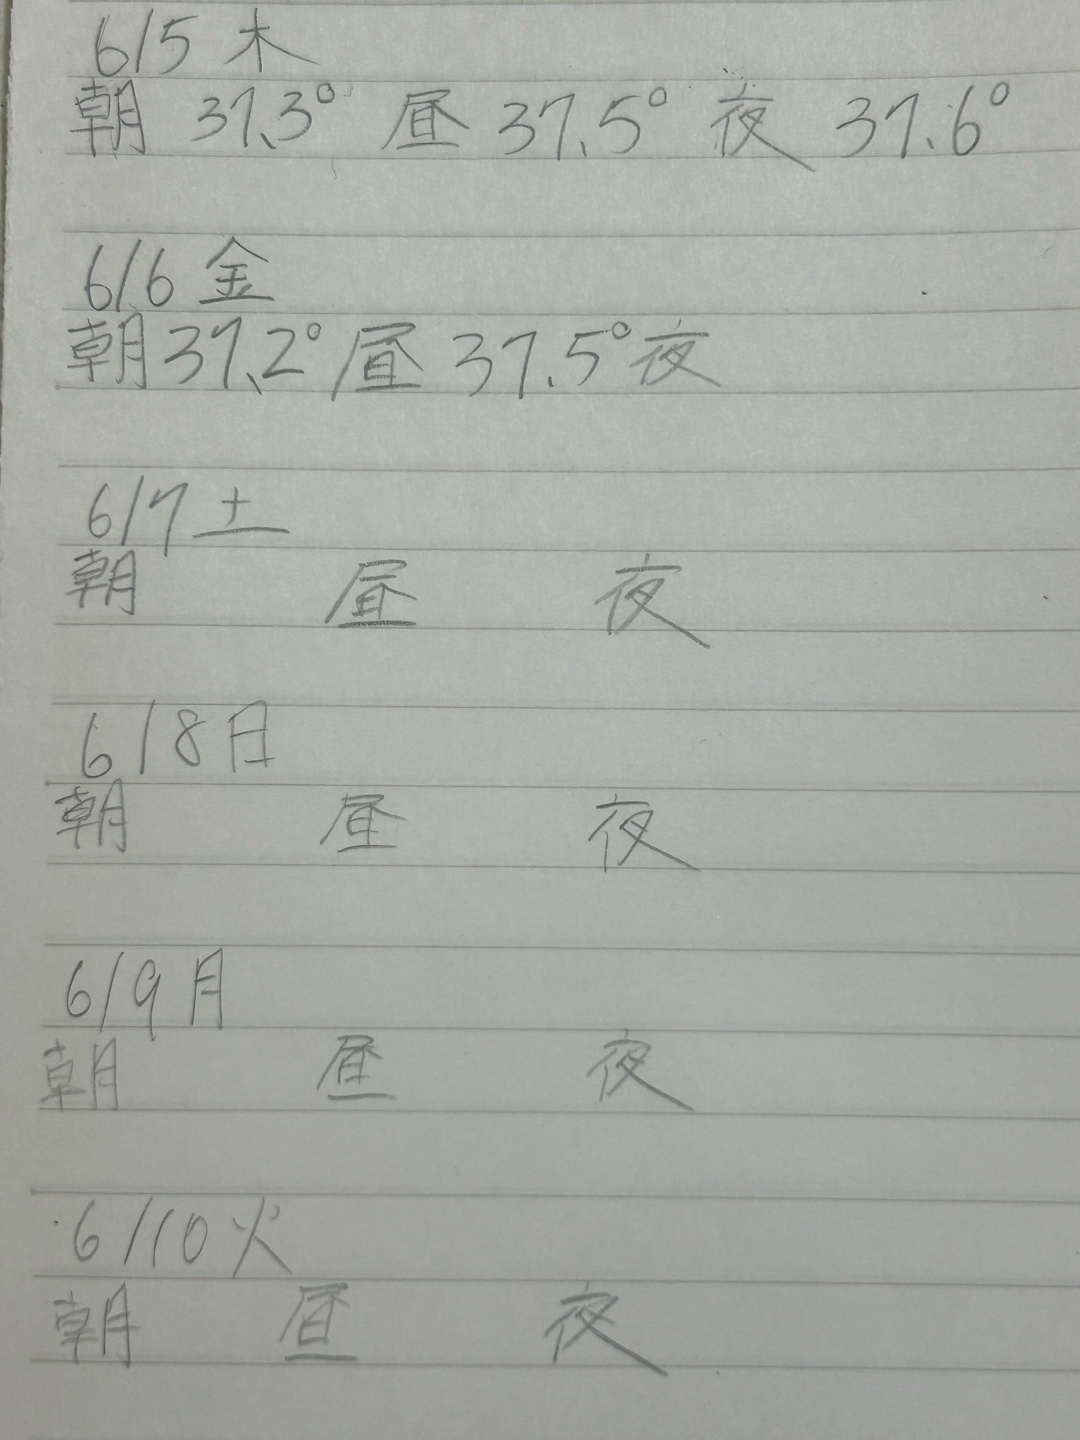 6/5 木
朝 37.3° 昼 37.5° 夜 37.6°
6/6 金
朝 37.2° 昼 37.5° 夜
6/7 土
朝 昼 夜
6/8 日
朝 昼 夜
6/9 月
朝 昼 夜
6/10 火
朝 昼 夜